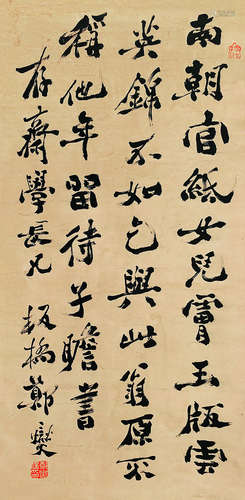 南朝官紙女兒膚玉版雲
英錦不如乞與此翁原不
稱他年留待子瞻書
存齋學長兄 板橋鄭燮